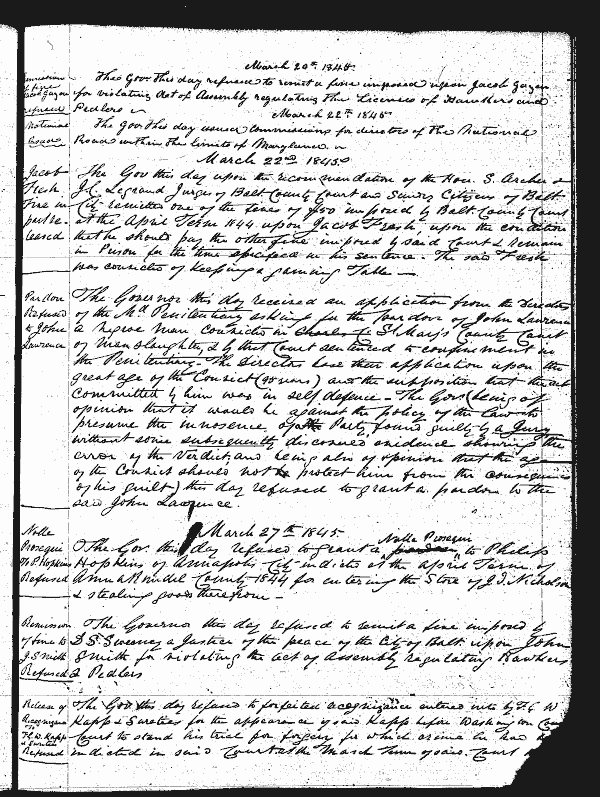 March 20th 1845.
Remission of fine Jacob Gazan refused
The Gov. this day refused to remit a fine imposed upon Jacob Gazan
for violating Act of Assembly regulating the Licenses of Hawkers and
Pedlers
March 22th 1845
The Gov. this day issued commissions for directors of the National
Road within the limits of Maryland
March 22nd 1845.
Jacob Fresh Fine in part released
The Gov this day upon the recommendation of the Hon. S. Archer &
J.C. Legrand Judges of Balt. County Court and Sundry Citizens of Balt.
City remitted one of the fines of $500 imposed by Balt. County Court
at the April Term 1844 upon Jacob Fresh, upon the condition
that he should pay the other fine imposed by said Court & remain
in Prison for the time specified in his sentence. The said Fresh
was convicted of keeping a gaming Table —
Pardon Refused to John Lawrence
The Governor this day received an application from the Directors
of the Md Penitentiary asking for the pardon of John Lawrence
a negroe man convicted in St Mary's County Court
of manslaughter, & by that Court sentenced to confinement in
the Penitentiary. The Directors base their application upon the
great age of the Convict (90 years) and the supposition that the act
committed by him was in self defence – The Gov. (being of
opinion that it would be against the policy of the law to
presume the innosence of the Party, found guilty by a Jury
without some subsequently discovered evidence showing the
error of the Verdict, and being also of opinion that the age
of the Convict should not protect him from the consequences
of his guilt) this day refused to grant a pardon to the
said John Lawrence.
March 27th 1845.
Nolle Prosequi to P. Hopkins Refused
Nolle Prosequi
The Gov. this day refused to grant a to Philip
Hopkins of Annapolis City indicted at the April Term of
Anne Arundel County 1844 for entering the Store of J. Nicholson
& stealing goods therefrom –
Remission of fine to J. Smith Refused
The Governor this day refused to remit a fine imposed by
D. S. Sweeney a Justice of the peace of the City of Balt. upon John
Smith for violating the act of Assembly regulating Hawkers
& Pedlers
Release of Recognizance F. W. Kapp & Sureties Refused
The Gov this day refused to forfeited recognizance entered into by F. W
Kapp & Sureties for the appearance of said Kapp before Washington
Court to stand his trial for forgery for which crime he had
indicted in said Court at the March Term of said Court